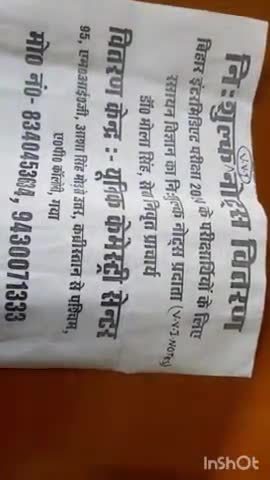 (V.V.I)
निःशुल्क नोट्स वितरण
बिहार इंटरमिडिएट परीक्षा 20 के परीक्षार्थियों के लिए
रसायन विज्ञान का निःशुल्क नोट्स प्रदाता (V.V.I NOTES)
डॉ० भोला सिंह, सेवा निवृत प्राचार्य
वितरण केन्द्र :- यूनिक केमेस्ट्री सेन्टर
95, एल०आई०जी०, आशा सिंह मोड़ से उतर, कब्रिस्तान से पश्चिम,
ए०पी० कॉलोनी गया
मो० नं०- 834045364, 9430071333
InShOt